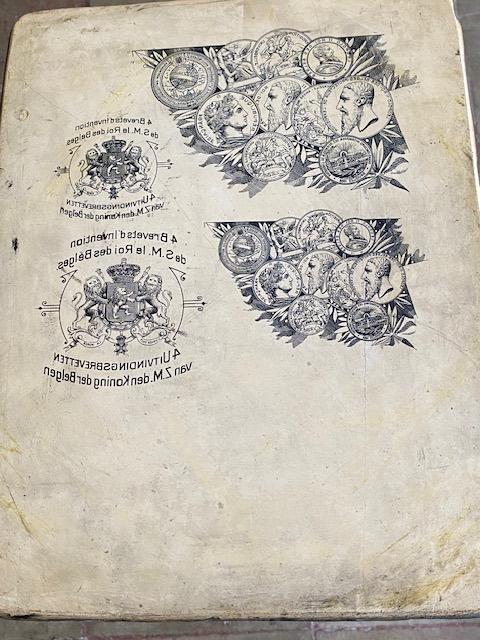 4 Brevets d'Invention
de S. M. le Roi des Belges
4 UITVINDINGSBREVETTEN
van Z.M. den Koning der Belgen
4 Brevets d'Invention
de S. M. le Roi des Belges
4 UITVINDINGSBREVETTEN
van Z.M. den Koning der Belgen